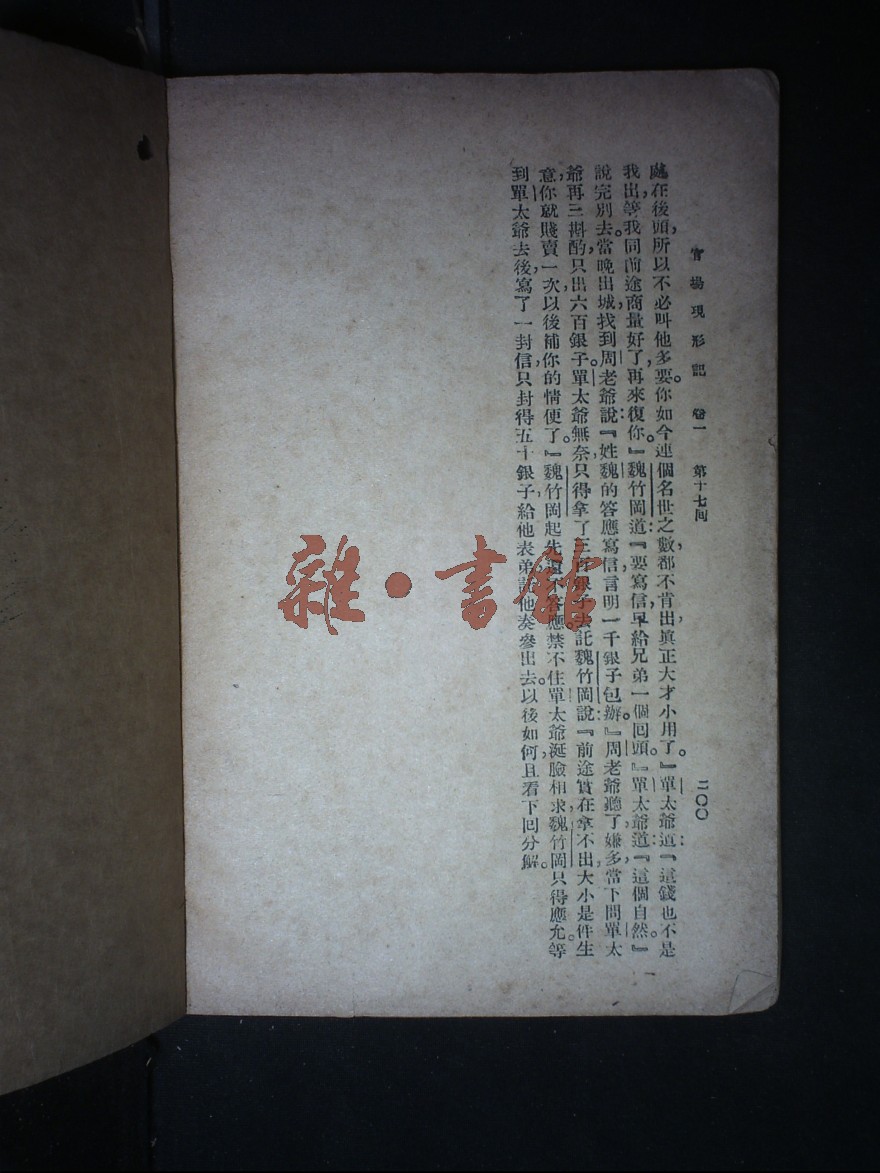 官場現形記　卷一　第十七回　二〇〇
處在後頭，所以不必叫他多要。你如今連個名世之數都不肯出，真正大才小用了。』單太爺道：『這錢也不是
我出，等我同前途商量好了，再來復你。』魏竹岡道：『要寫信，早給兄弟一個回頭。』單太爺道：『這個自然。』
說完別去。當晚出城，找到周老爺說：『姓魏的答應寫信，言明一千銀子包辦。』周老爺聽了嫌多，當下問單太
爺再三斟酌，只出六百銀子。單太爺無奈，只得拿了三百銀子去託魏竹岡說：『前途實在拿不出，大小是件生
意，你就賤賣一次，以後補你的情便了。』魏竹岡起先還不答應，禁不住單太爺涎臉相求，魏竹岡只得應允。等
到單太爺去後，寫了一封信，只封得五十銀子，給他表弟，託他奏參出去。以後如何，且看下回分解。
雜・書館